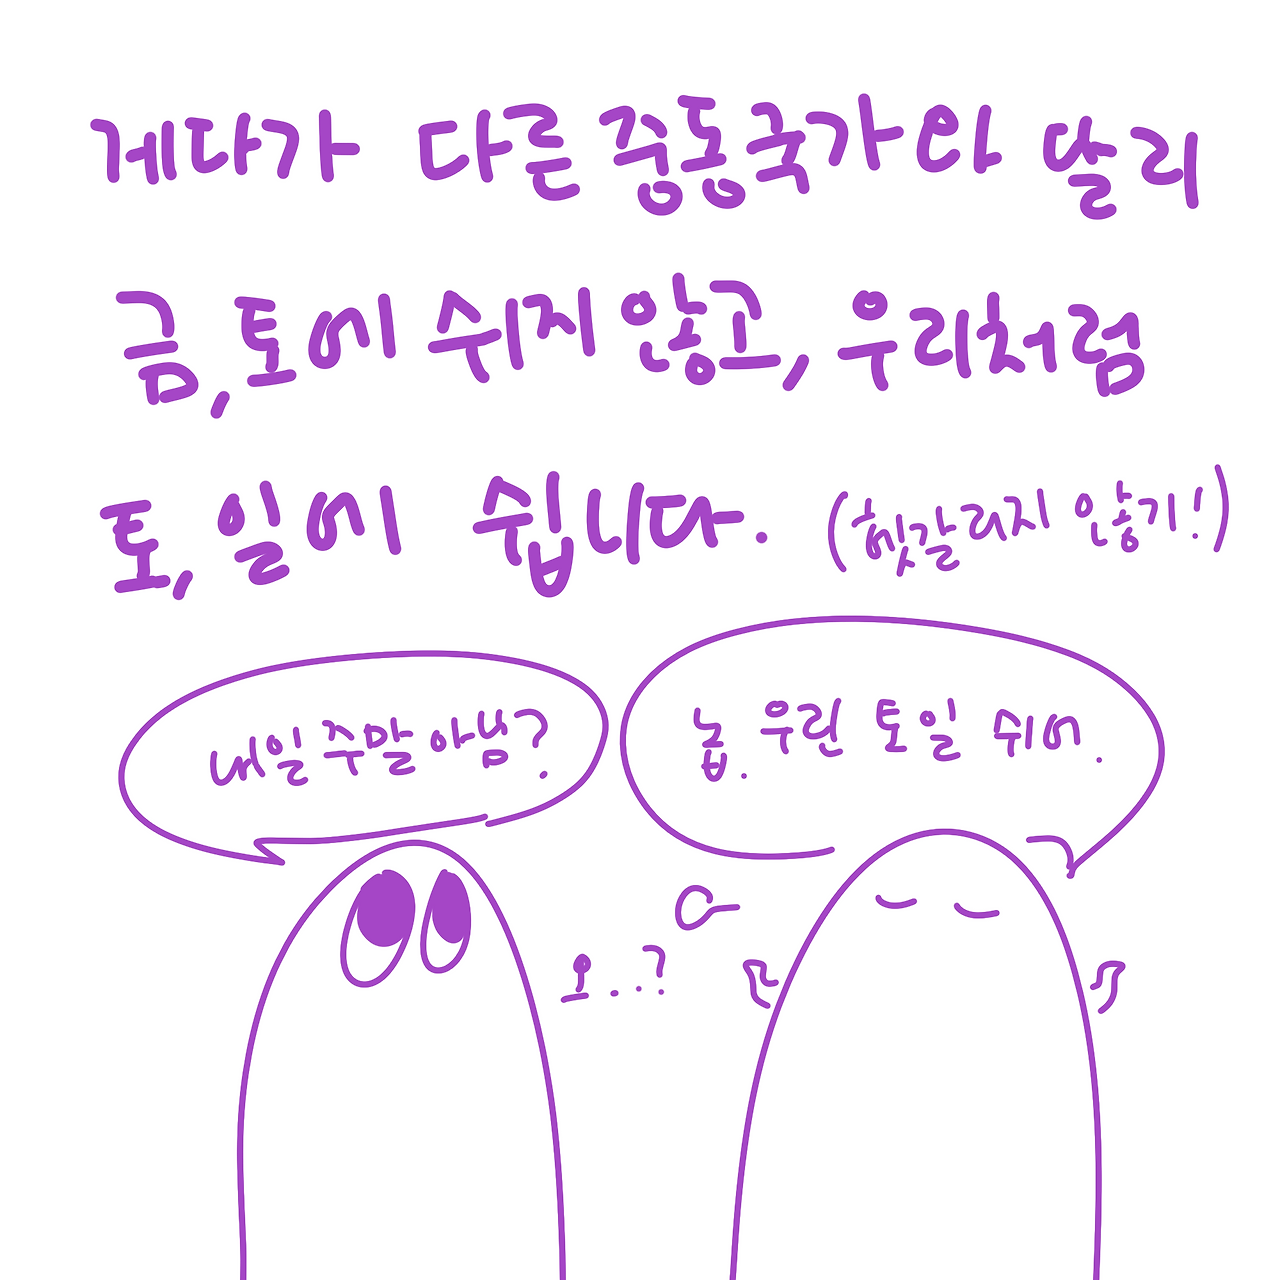 게다가 다른 중동국가와 달리
금,토에 쉬지 않고, 우리처럼
토,일에 쉽니다. (헷갈리지 않기!)
내일 주말 아님?
놉. 우린 토일 쉬어.
오..?